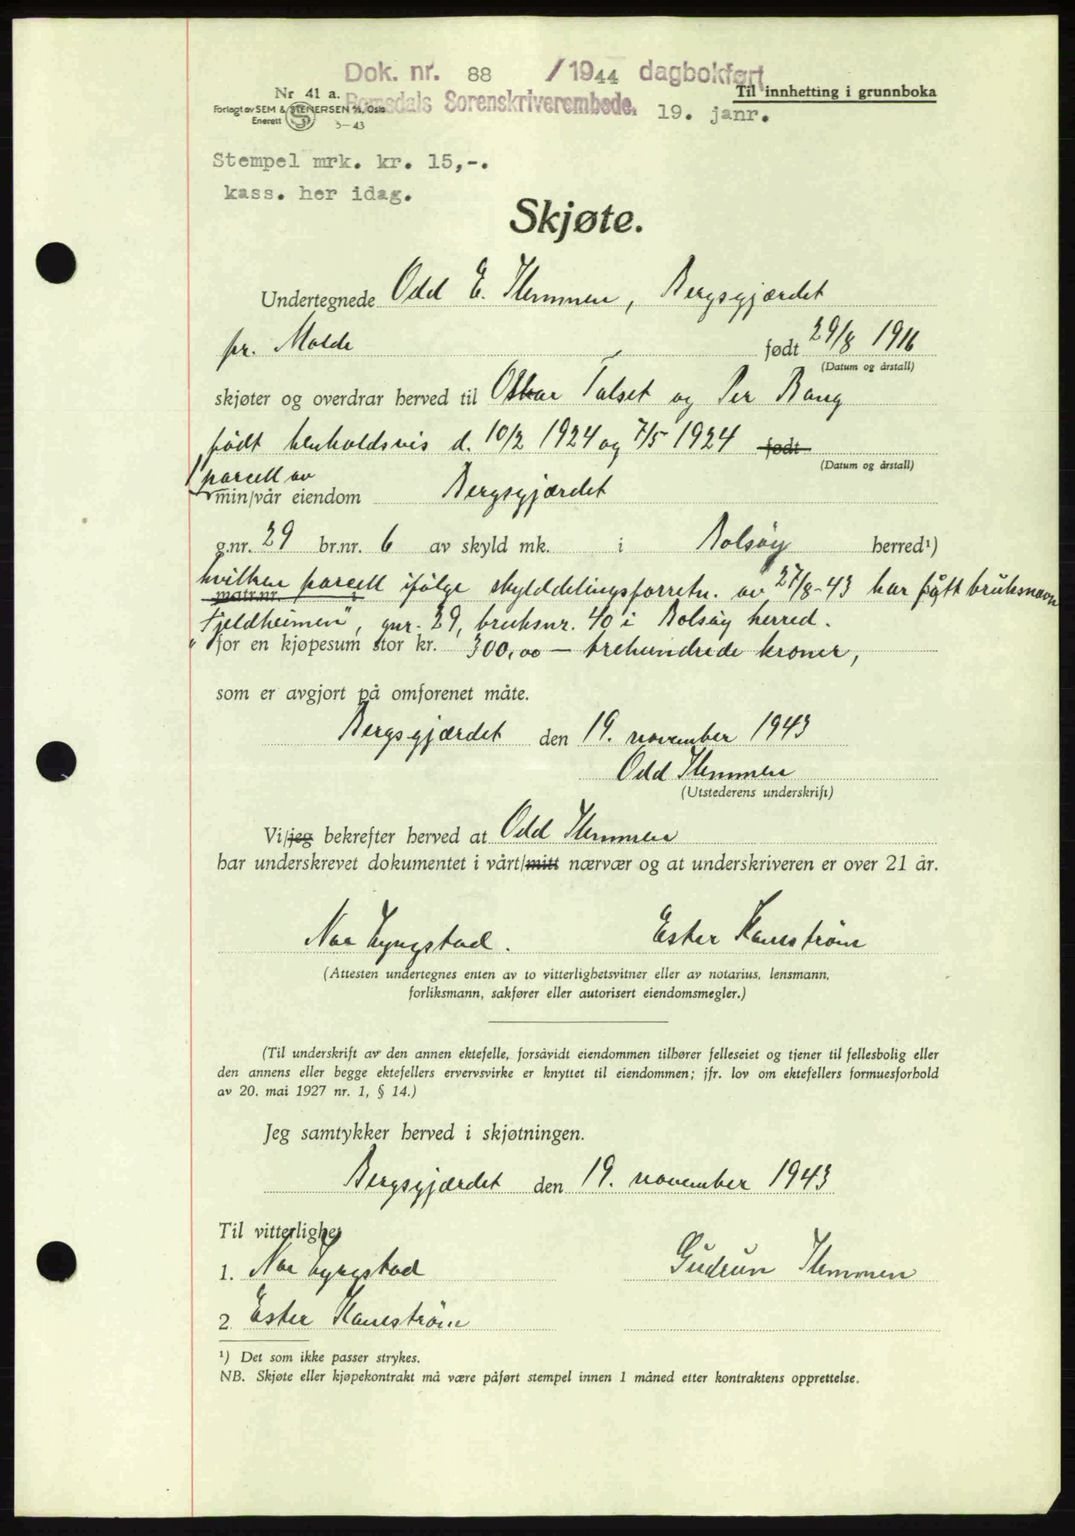 Dok. nr. 88 /1944 dagbokført
Nr 41 a. Romsdals Sorenskriverembede. 19. janr. Til innhetting i grunnboka
Forlagt av SEM & STENERSEN A/S, Oslo
Enerett S 5-43
Stempel mrk. kr. 15,-.
kass. her idag.
Skjøte.
Undertegnede Odd E. Hemmen, Bergsgjærdet
pr. Molde født 29/8 1916
(Datum og årstall)
skjøter og overdrar herved til Oskar Talset og Per Bang
født henholdsvis d. 10/2 1924 og 7/5 1924 født
(Datum og årstall)
1 parcell av
min/vår eiendom Bergsgjærdet
g.nr. 29 br.nr. 6 av skyld mk. i Bolsøy herred¹)
hvilken parcell ifølge skylddelingsforretn. av 27/8-43 har fått bruksnavn
matr.nr. i
"Fjeldheimen", gnr. 29, bruksnr. 40 i Bolsøy herred.
for en kjøpesum stor kr. 300,00 — trehundrede kroner,
som er avgjort på omforenet måte.
Bergsgjærdet den 19. november 1943
Odd Hemmen
(Utstederens underskrift)
Vi/jeg bekrefter herved at Odd Hemmen
har underskrevet dokumentet i vårt/mitt nærvær og at underskriveren er over 21 år.
Lyngstad. Ester Hanestrøm
(Attesten undertegnes enten av to vitterlighetsvitner eller av notarius, lensmann,
forliksmann, sakfører eller autorisert eiendomsmegler.)
(Til underskrift av den annen ektefelle, forsåvidt eiendommen tilhører felleseiet og tjener til fellesbolig eller
den annens eller begge ektefellers ervervsvirke er knyttet til eiendommen; jfr. lov om ektefellers formuesforhold
av 20. mai 1927 nr. 1, § 14.)
Jeg samtykker herved i skjøtningen.
Bergsgjærdet den 19. november 1943
Til vitterlighet
1. Lyngstad Gudrun Hemmen
2. Ester Hanestrøm
¹) Det som ikke passer strykes.
NB. Skjøte eller kjøpekontrakt må være påført stempel innen 1 måned etter kontraktens opprettelse.